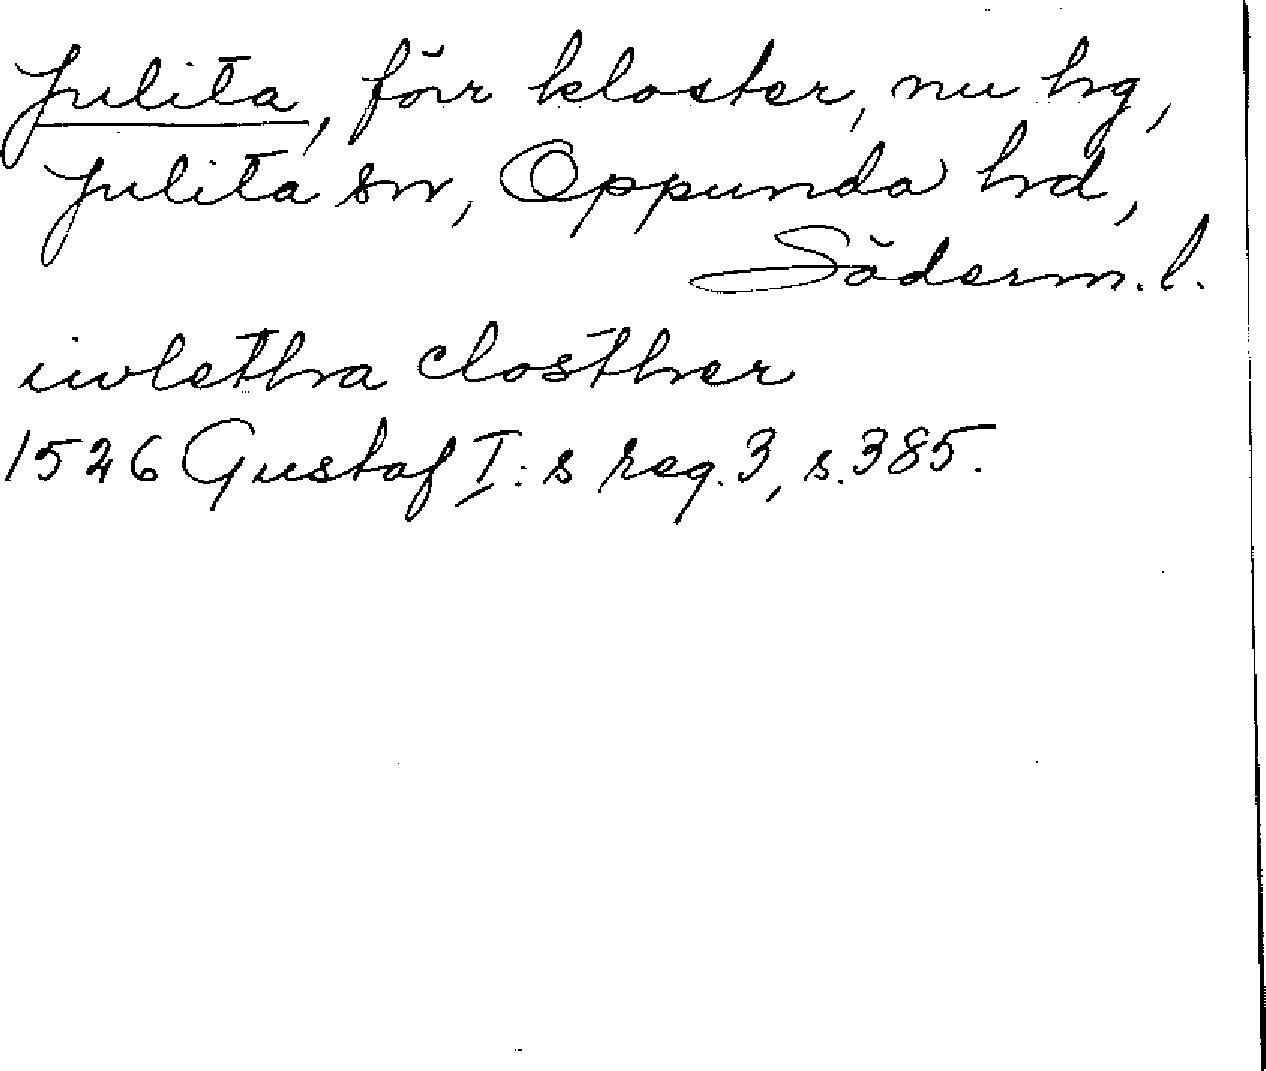 Julita, förr kloster, nu hrg,
Julita sn, Oppunda hrd,
Söderm. l.
iwlethra closther
1526 Gustaf I:s reg. 3, s. 385.